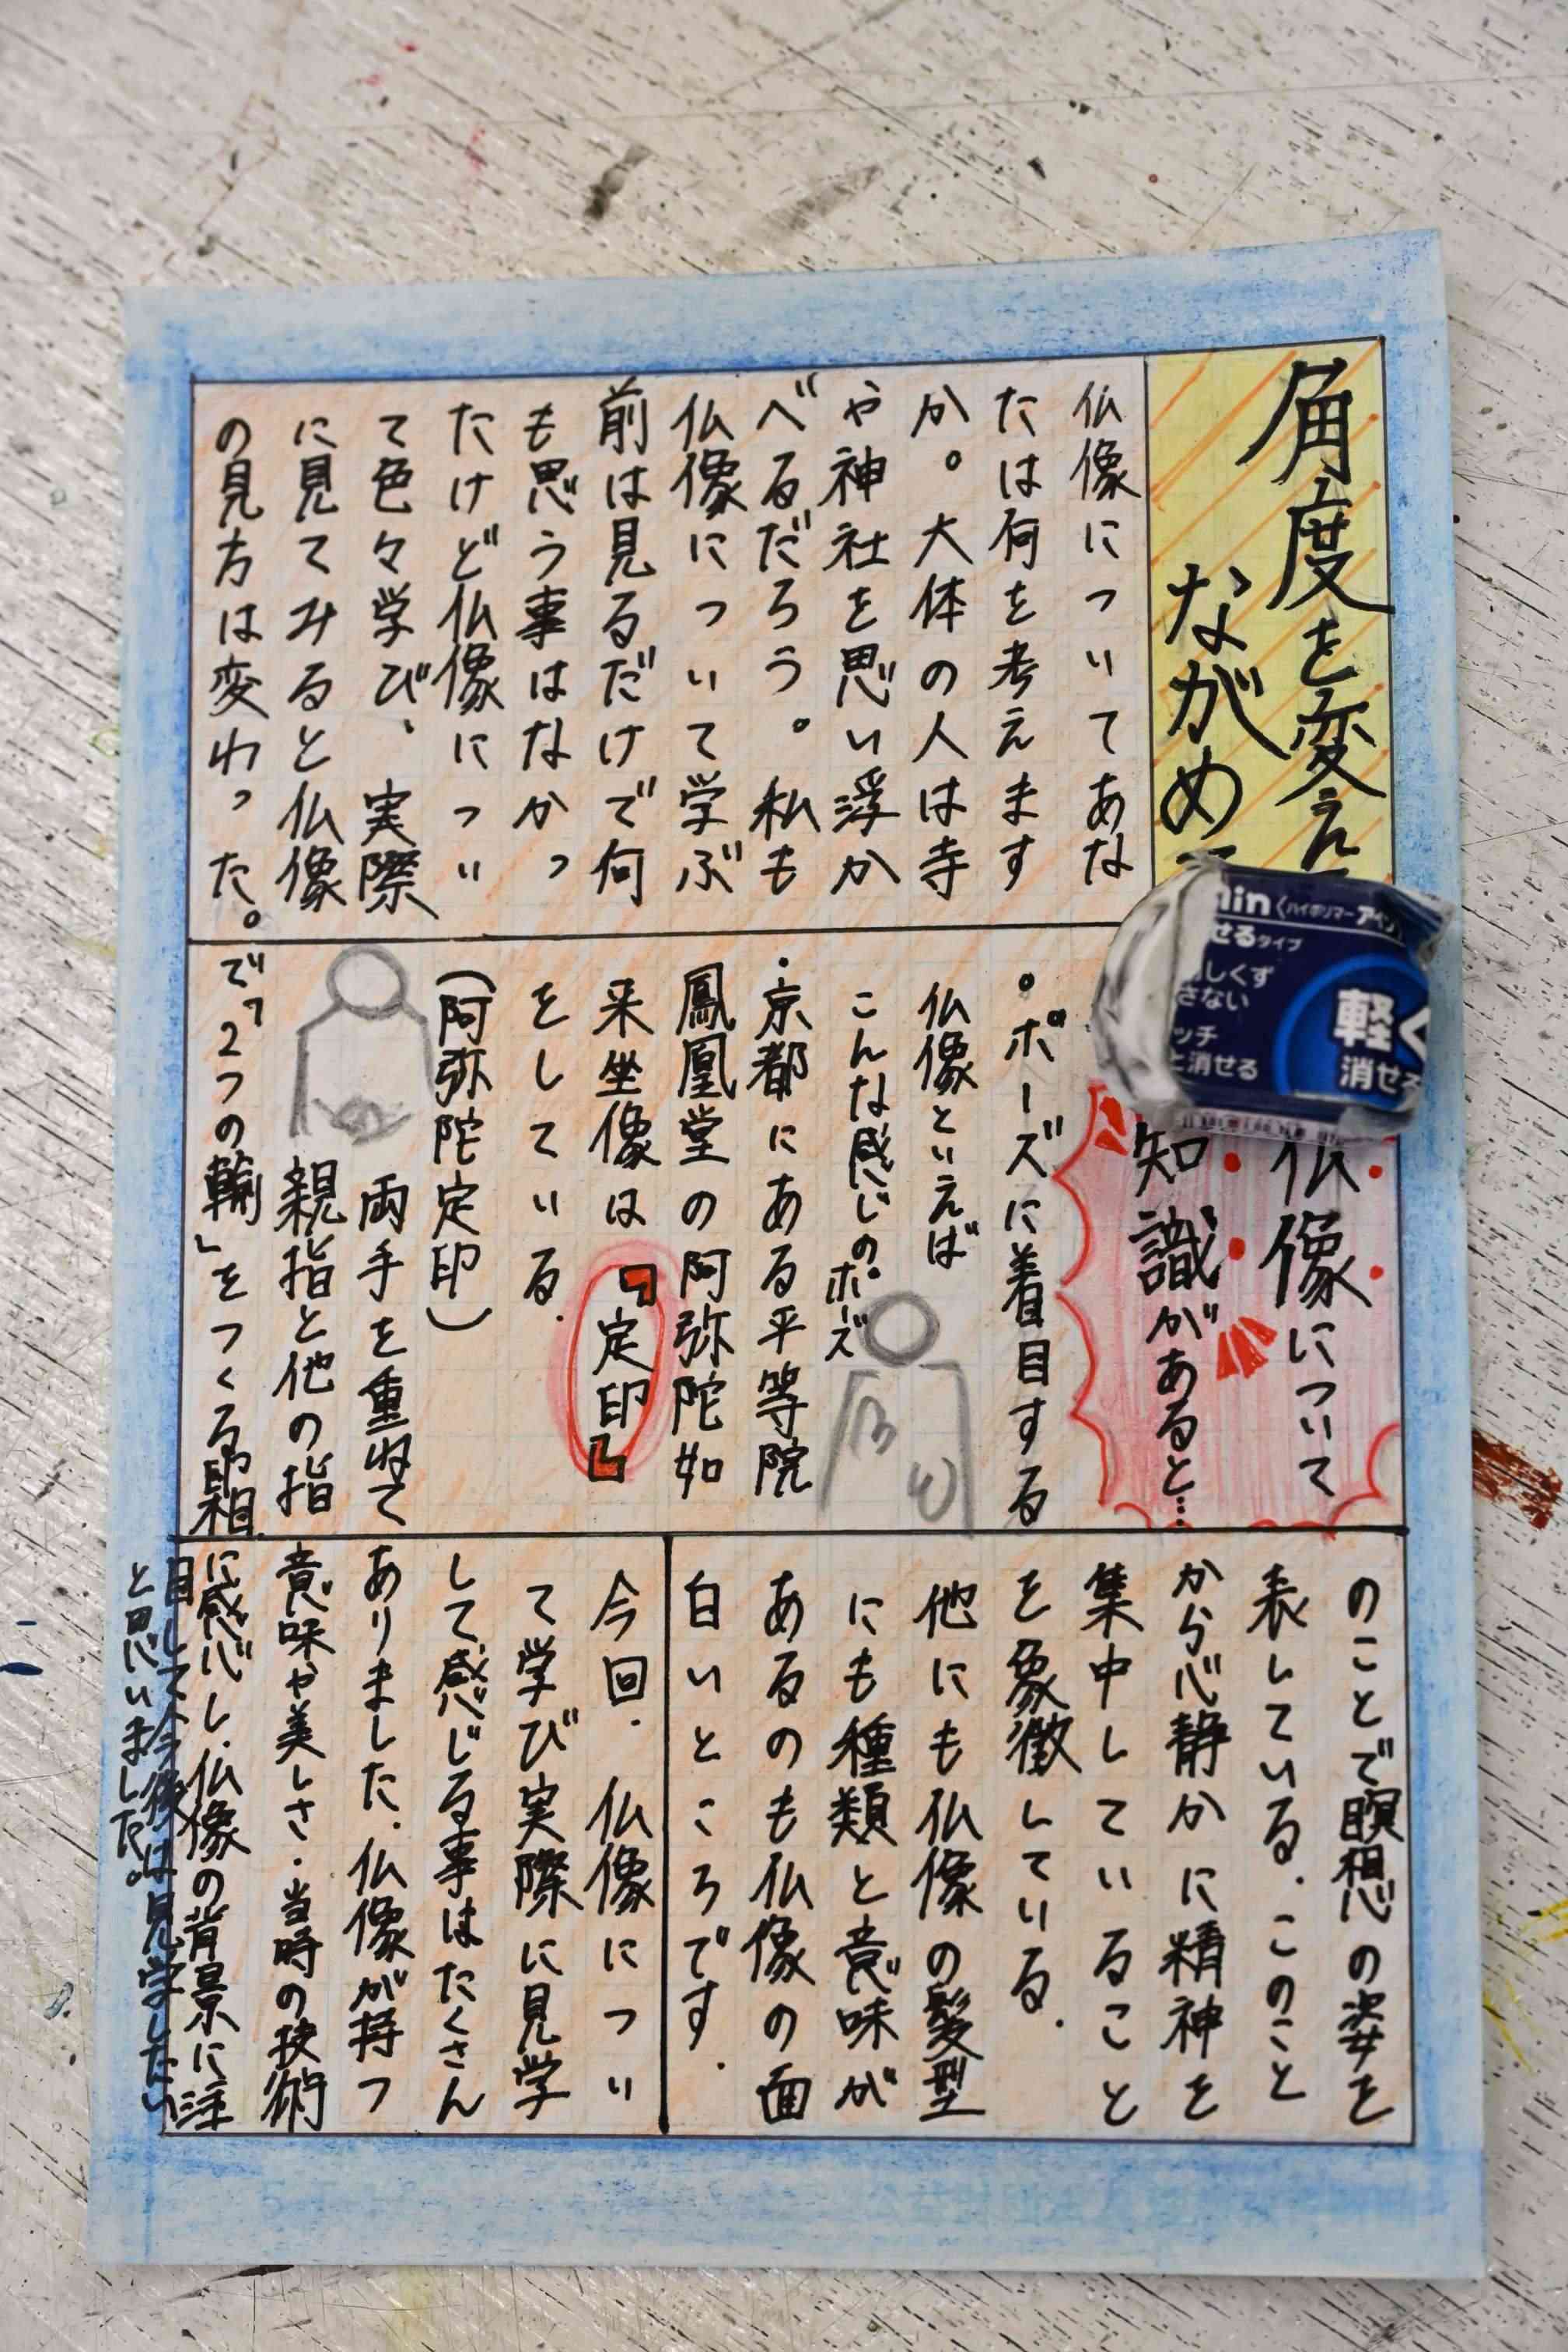 角度を変え
ながめ
仏像についてあな
たは何を考えます
か。大体の人は寺
や神社を思い浮か
べるだろう。私も
仏像について学ぶ
前は見るだけで何
も思う事はなかっ
たけど仏像につい
て色々学び、実際
に見てみると仏像
の見方は変わった。
仏像について
知識があると…
・ポーズに着目する
仏像といえば
こんな感じのポーズ
・京都にある平等院
鳳凰堂の阿弥陀如
来坐像は『定印』
をしている.
(阿弥陀定印)
両手を重ねて
親指と他の指
で「2つの輪」をつくる印相
のことで瞑想の姿を
表している.このこと
から心静かに精神を
集中していること
を象徴している.
他にも仏像の髪型
にも種類と意味が
あるのも仏像の面
白いところです.
今回.仏像につい
て学び実際に見学
して感じる事はたくさん
ありました.仏像が持つ
意味や美しさ・当時の技術
に感心し.仏像の背景に注
目して今後は見学したい
と思いました。
ain〈ハイポリマー アイン
せるタイプ
しくず
さない
ッチ
と消せる
軽く
消せる